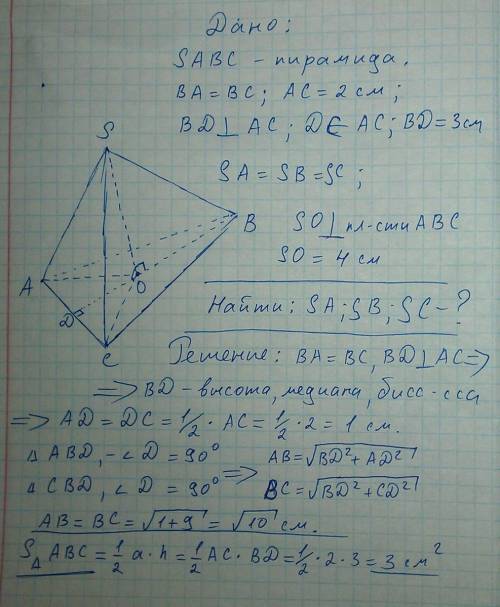 Дано:
SABC – пирамида.
BA = BC; AC = 2 см;
BD ⊥ AC; D ∈ AC; BD = 3 см
SA = SB = SC;
SO ⊥ пл-сти ABC
SO = 4 см
Найти: SA; SB; SC – ?
S
A
B
O
D
C
Решение: BA = BC, BD ⊥ AC ⇒
⇒ BD – высота, медиана, бисс-сса
⇒ AD = DC = 1/2 · AC = 1/2 · 2 = 1 см.
Δ ABD, – ∠ D = 90° ⇒ AB = √(BD² + AD²)
Δ CBD, ∠ D = 90° BC = √(BD² + CD²)
AB = BC = √(1+9) = √10 см.
S Δ ABC = 1/2 a · h = 1/2 AC · BD = 1/2 · 2 · 3 = 3 см²